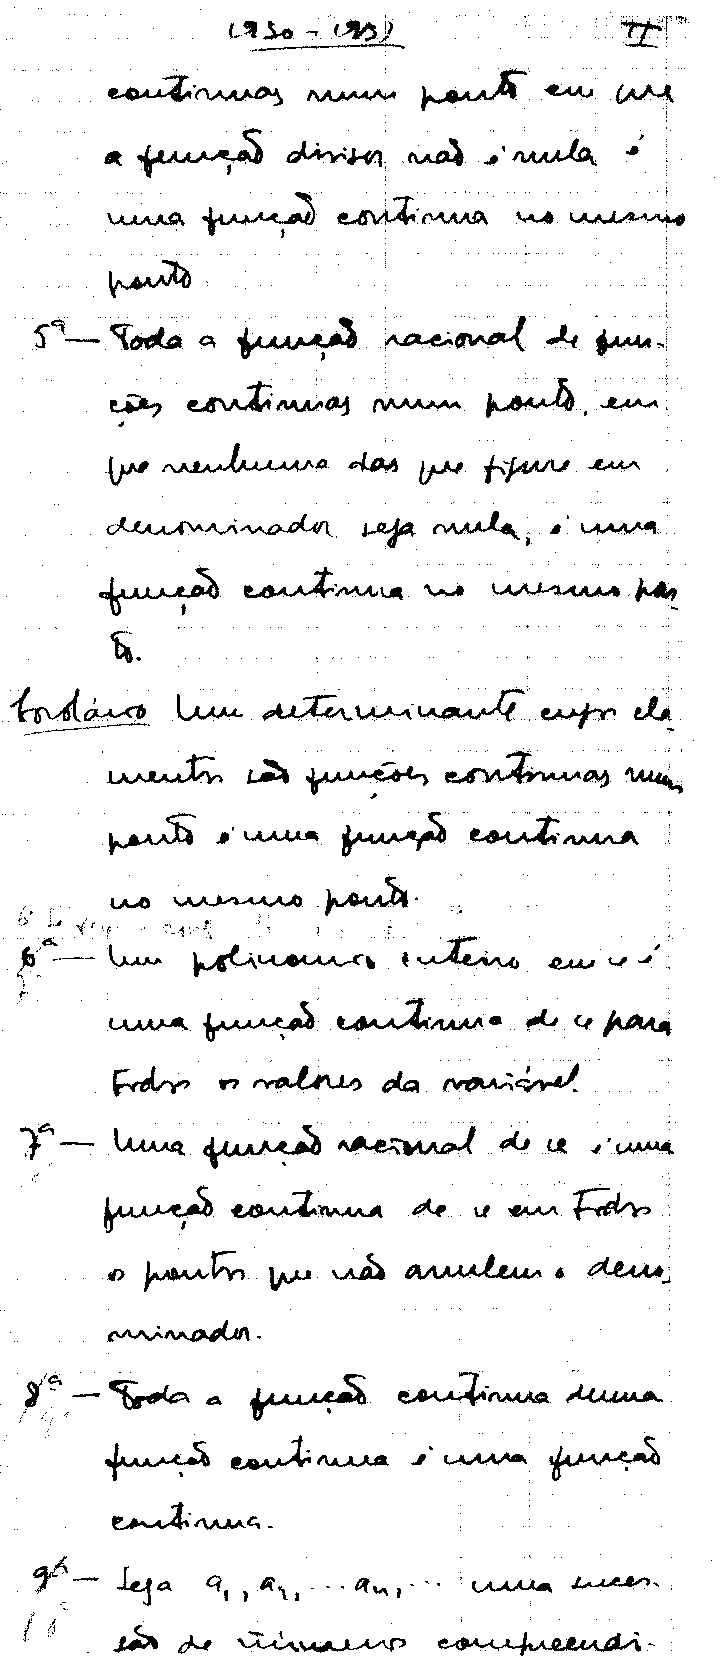 1950-1951 II
contínuas num ponto em que
a função divisor não é nula é
uma função contínua no mesmo
ponto
5ª — Toda a função racional de fun-
ções contínuas num ponto, em
que nenhuma das que figure em
denominador seja nula, é uma
função contínua no mesmo pon-
to.
Corolário Um determinante cujos ele-
mentos são funções contínuas num
ponto é uma função contínua
no mesmo ponto.
6ª — Um polinomio inteiro em x é
uma função contínua de x para
todos os valores da variável.
7ª — Uma função racional de x é uma
função contínua de x em todos
os pontos que não anulem o deno-
minador.
8ª — Toda a função contínua duma
função contínua é uma função
contínua.
9ª — Seja a₁, a₂, ... aₙ, ... uma suces-
são de números compreendi-